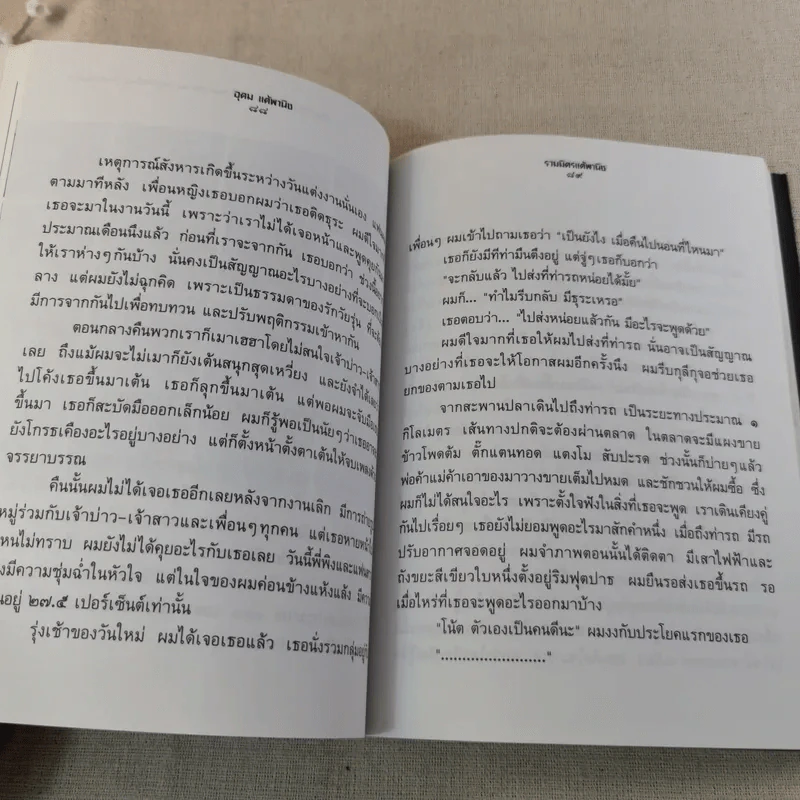 อุดม แต้พานิช
๘๘
เหตุการณ์สังหารเกิดขึ้นระหว่างวันแต่งงานนั่นเอง
ตามมาทีหลัง เพื่อนหญิงเธอบอกผมว่าเธอติดธุระ ผมดีใจมาก
เธอจะมาในงานวันนี้ เพราะว่าเราไม่ได้เจอหน้าและพูดคุยกัน
ประมาณเดือนนึงแล้ว ก่อนที่เราจะจากกัน เธอบอกว่า ช่วงนี้
ให้เราห่างๆกันบ้าง นั่นคงเป็นสัญญาณอะไรบางอย่างที่จะบอก
ลาง แต่ผมยังไม่ฉุกคิด เพราะเป็นธรรมดาของรักวัยรุ่น ที่จะ
มีการจากกันไปเพื่อทบทวน และปรับพฤติกรรมเข้าหากัน
ตอนกลางคืนพวกเราก็เมาเฮฮาโดยไม่สนใจเจ้าบ่าว-เจ้า
เลย ถึงแม้ผมจะไม่เมาก็ยังเต้นสนุกสุดเหวี่ยง และยังจำได้
ไปโค้งเธอขึ้นมาเต้น เธอก็ลุกขึ้นมาเต้น แต่พอผมจะจับมือ
ขึ้นมา เธอก็สะบัดมือออกเล็กน้อย ผมก็รู้พอเป็นนัยๆว่าเธอ
ยังโกรธเคืองอะไรอยู่บางอย่าง แต่ก็ตั้งหน้าตั้งตาเต้นให้จบเพลง
จรรยาบรรณ
คืนนั้นผมไม่ได้เจอเธออีกเลยหลังจากงานเลิก มีการถ่าย
หมู่ร่วมกับเจ้าบ่าว-เจ้าสาวและเพื่อนๆทุกคน แต่เธอหาย
ไหนไม่ทราบ ผมยังไม่ได้คุยอะไรกับเธอเลย วันนี้พี่พิงและแฟน
มีความชุ่มฉ่ำในหัวใจ แต่ในใจของผมค่อนข้างแห้งแล้ง มี
อยู่ ๒๗.๕ เปอร์เซ็นต์เท่านั้น
รุ่งเช้าของวันใหม่ ผมได้เจอเธอแล้ว เธอนั่งรวมกลุ่มอยู่
รวมมิตรแต้พานิช
๘๙
เพื่อนๆ ผมเข้าไปถามเธอว่า "เป็นยังไง เมื่อคืนไปนอนที่ไหนมา"
เธอก็ยังมีทีท่ามึนตึงอยู่ แต่จู่ๆเธอก็บอกว่า
"จะกลับแล้ว ไปส่งที่ท่ารถหน่อยได้มั้ย"
ผมก็... "ทำไมรีบกลับ มีธุระเหรอ"
เธอตอบว่า... "ไปส่งหน่อยแล้วกัน มีอะไรจะพูดด้วย"
ผมดีใจมากที่เธอให้ผมไปส่งที่ท่ารถ นั่นอาจเป็นสัญญาณ
บางอย่างที่เธอจะให้โอกาสผมอีกครั้งนึง ผมรีบกุลีกุจอช่วยเธอ
ยกของตามเธอไป
จากสะพานปลาเดินไปถึงท่ารถ เป็นระยะทางประมาณ ๑
กิโลเมตร เส้นทางปกติจะต้องผ่านตลาด ในตลาดจะมีแผงขาย
ข้าวโพดต้ม ตั๊กแตนทอด แตงโม สับปะรด ช่วงนั้นก็บ่ายๆแล้ว
พ่อค้าแม่ค้าเอาของมาวางขายเต็มไปหมด และชักชวนให้ผมซื้อ ซึ่ง
ผมก็ไม่ได้สนใจอะไร เพราะตั้งใจฟังในสิ่งที่เธอจะพูด เราเดินเคียงคู่
กันไปเรื่อยๆ เธอยังไม่ยอมพูดอะไรมาสักคำหนึ่ง เมื่อถึงท่ารถ มีรถ
ปรับอากาศจอดอยู่ ผมจำภาพตอนนั้นได้ติดตา มีเสาไฟฟ้าและ
ถังขยะสีเขียวใบหนึ่งตั้งอยู่ริมฟุตปาธ ผมยืนรอส่งเธอขึ้นรถ รอ
เมื่อไหร่ที่เธอจะพูดอะไรออกมาบ้าง
"โน้ต ตัวเองเป็นคนดีนะ" ผมงงกับประโยคแรกของเธอ
"........................."